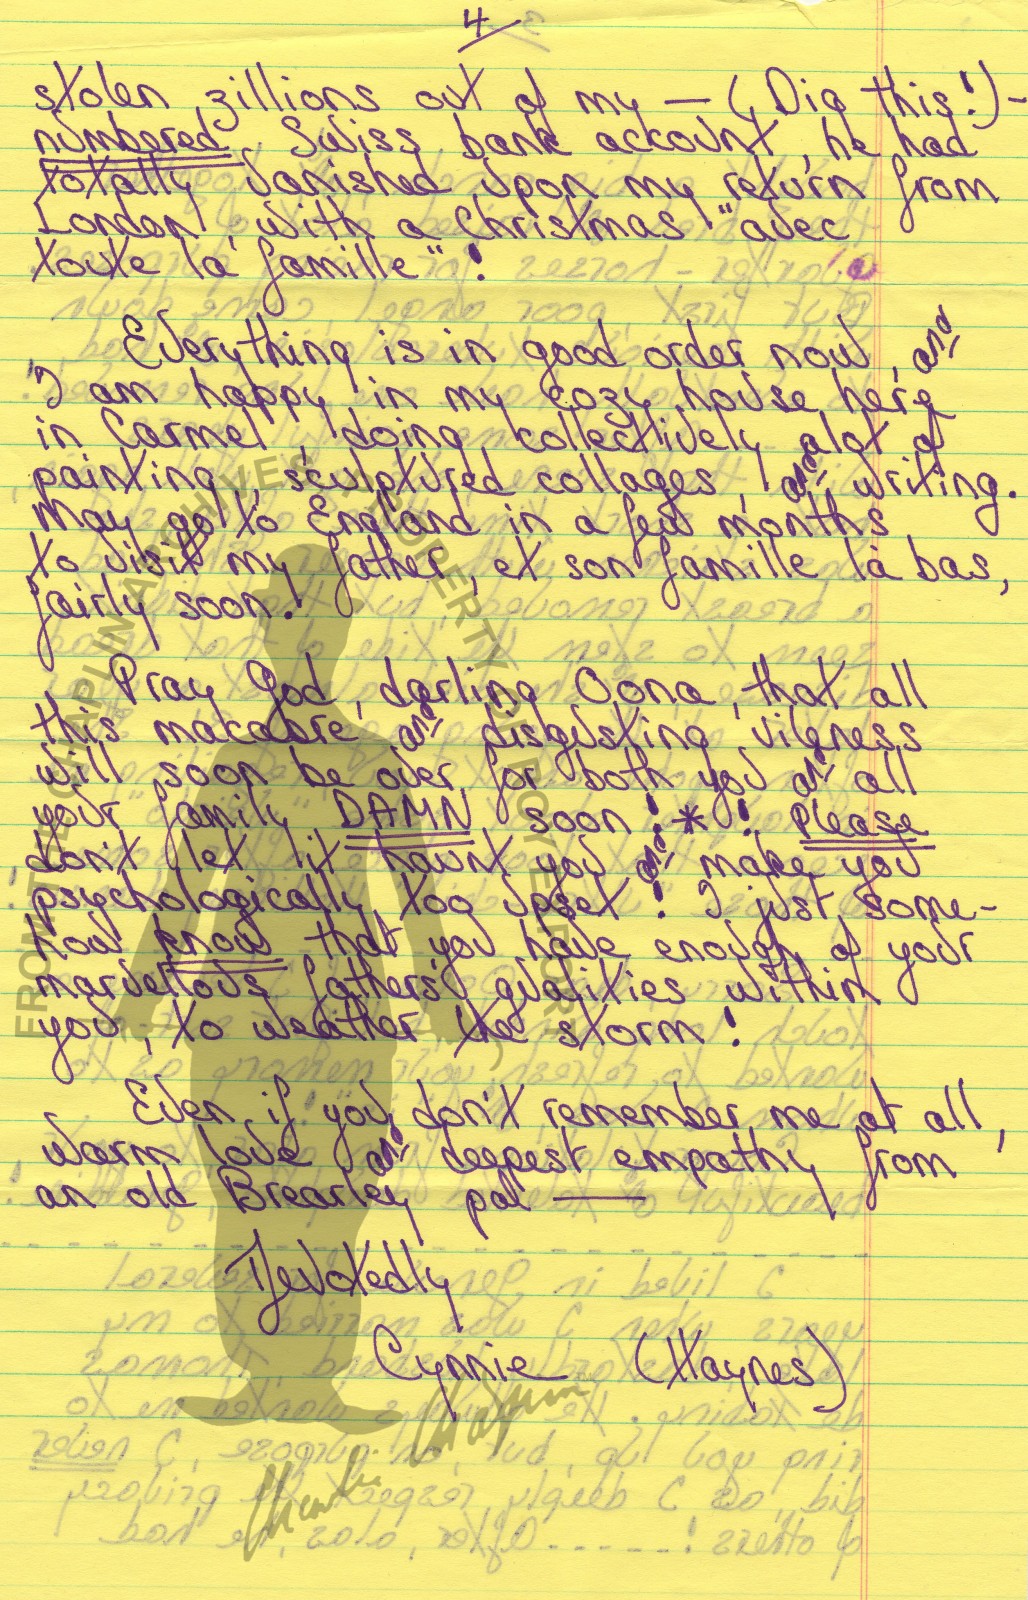 4
stolen zillions out of my — (Dig this!) -
numbered Swiss bank account, he had
totally vanished upon my return from
London, with a Christmas "avec
toute la famille"!
Everything is in good order now, and
I am happy in my cozy house here
in Carmel, doing collectively alot of
painting, sculptured collages, and writing.
May go to England in a few months
to visit my father, et son famille là bas,
fairly soon!
Pray God, darling Oona, that all
this macabre and disgusting vileness
will soon be over for both you and all
your family DAMN soon! * ! Please
don't let it haunt you and make you
psychologically too upset! I just some-
how know that you have enough of your
marvellous father's qualities within
you, to weather the storm!
Even if you don't remember me at all,
warm love and deepest empathy from
an old Brearley pal ——
Devotedly
Cynnie (Haynes)
FROM THE CHAPLIN ARCHIVES PROPERTY OF ROY EXPORT
Charlie Chaplin